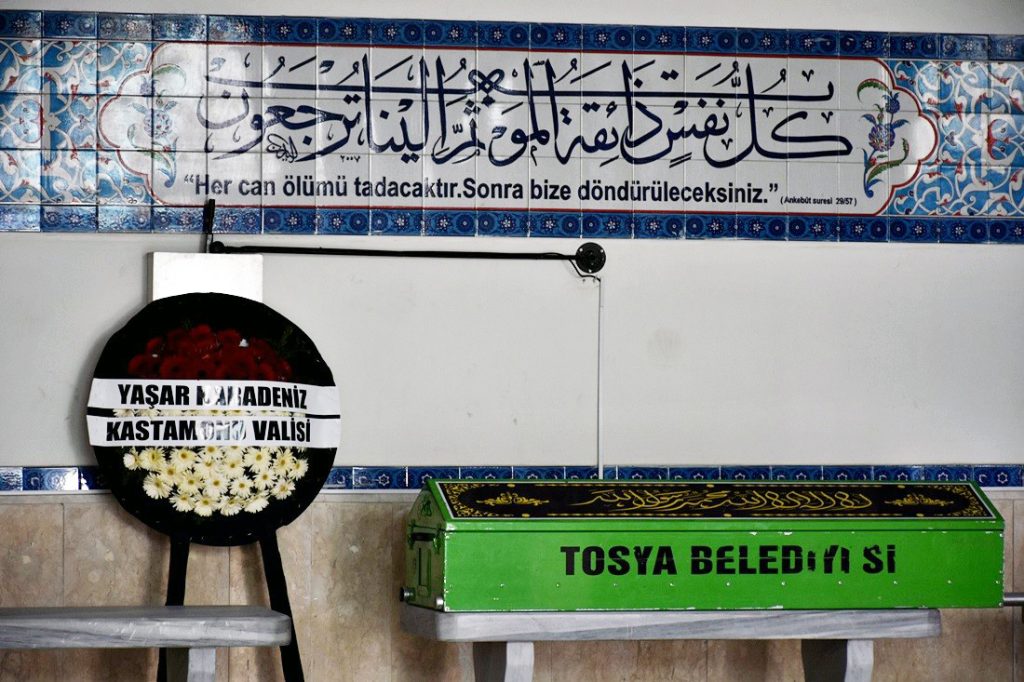 كل نفس ذائقة الموت ثم الينا ترجعون
“Her can ölümü tadacaktır.Sonra bize döndürüleceksiniz.” (Ankebût suresi 29/57)
YAŞAR KARADENİZ
KASTAMONU VALİSİ
لا اله الا الله محمد رسول الله
TOSYA BELEDİYESİ